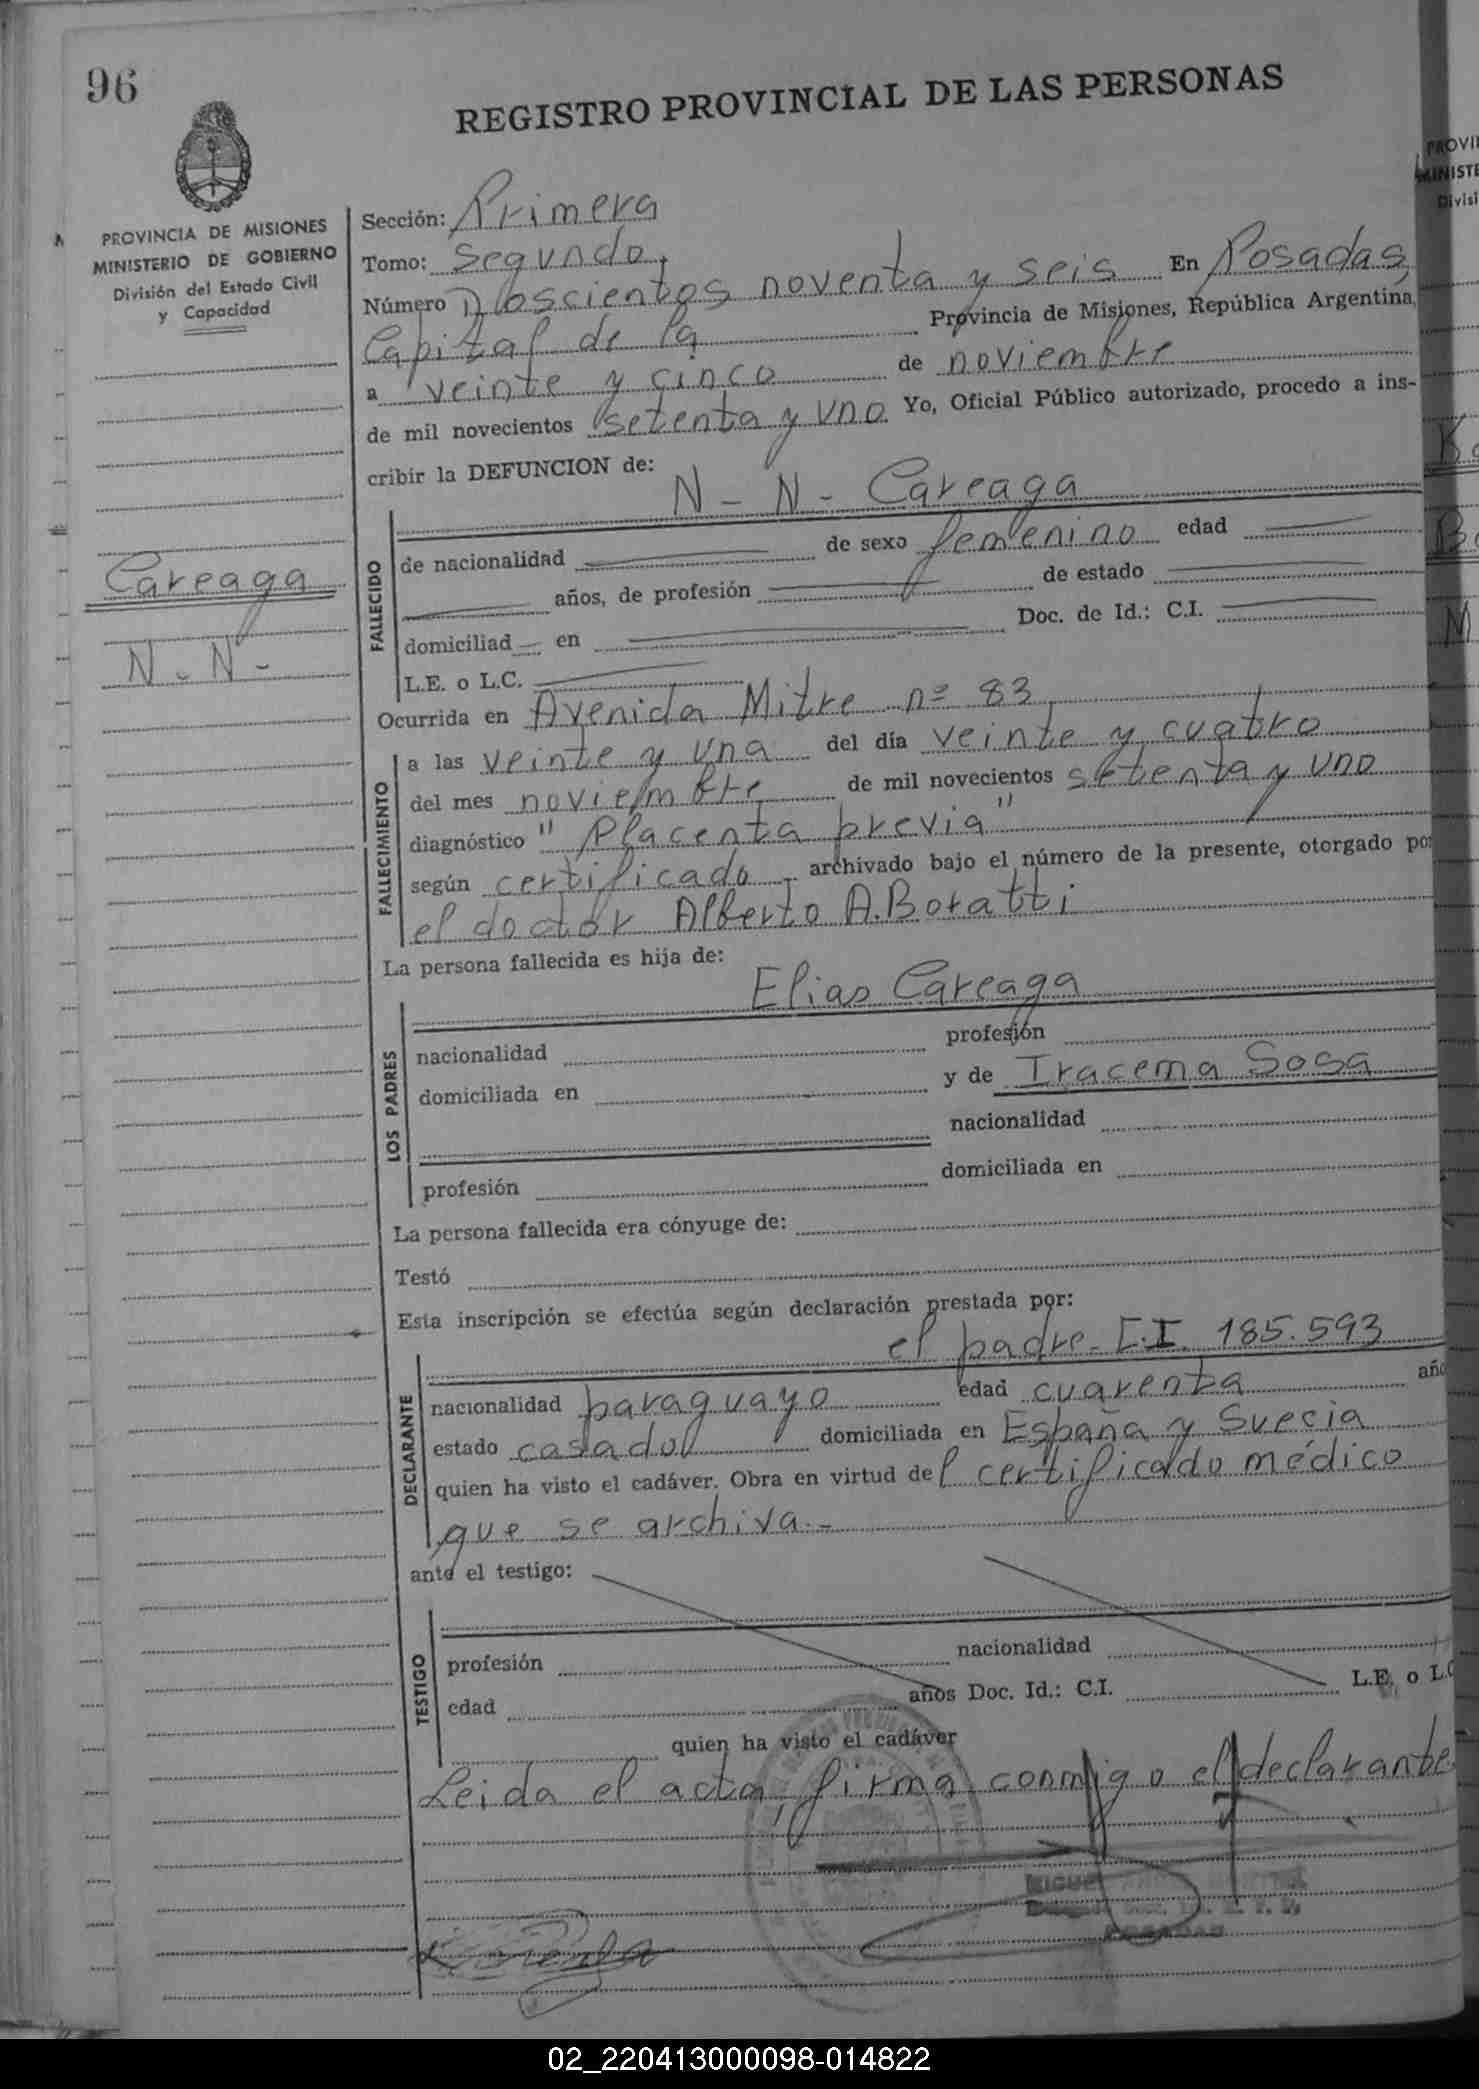 96
REGISTRO PROVINCIAL DE LAS PERSONAS
PROVINCIA DE MISIONES
MINISTERIO DE GOBIERNO
División del Estado Civil
y Capacidad
Careaga
N. N.-
Sección: Primera
Tomo: Segundo,
Número Doscientos noventa y seis En Posadas,
Capital de la Provincia de Misiones, República Argentina,
a veinte y cinco de noviembre
de mil novecientos setenta y uno Yo, Oficial Público autorizado, procedo a ins-
cribir la DEFUNCION de:
N - N - Careaga
FALLECIDO
de nacionalidad de sexo femenino edad
años, de profesión de estado
domiciliad en Doc. de Id.: C.I.
L.E. o L.C.
Ocurrida en Avenida Mitre nº 83
FALLECIMIENTO
a las veinte y una del día veinte y cuatro
del mes noviembre de mil novecientos setenta y uno
diagnóstico "Placenta previa"
según certificado archivado bajo el número de la presente, otorgado por
el doctor Alberto A. Boratti
La persona fallecida es hija de:
Elias Careaga
LOS PADRES
nacionalidad profesión
domiciliada en y de Iracema Sosa
nacionalidad
profesión domiciliada en
La persona fallecida era cónyuge de:
Testó
Esta inscripción se efectúa según declaración prestada por:
el padre. C.I. 185.593
DECLARANTE
nacionalidad paraguayo edad cuarenta año
estado casado domiciliada en España y Suecia
quien ha visto el cadáver. Obra en virtud del certificado médico
que se archiva.-
ante el testigo:
TESTIGO
profesión nacionalidad
edad años Doc. Id.: C.I. L.E. o L.C
quien ha visto el cadáver
Leida el acta, firma conmigo el declarante
POSADAS
02_220413000098-014822